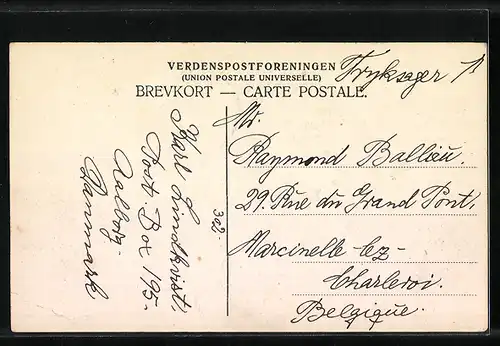 VERDENSPOSTFORENINGEN
(UNION POSTALE UNIVERSELLE)
BREVKORT — CARTE POSTALE.
Tryksager
Mr.
Raymond Ballieu.
29. Rue du Grand Pont.
Marcinelle lez-
Charleroi.
Belgique.
Karl Lindkvist.
Post. Box 195-
Aalborg-
Danmark
302-